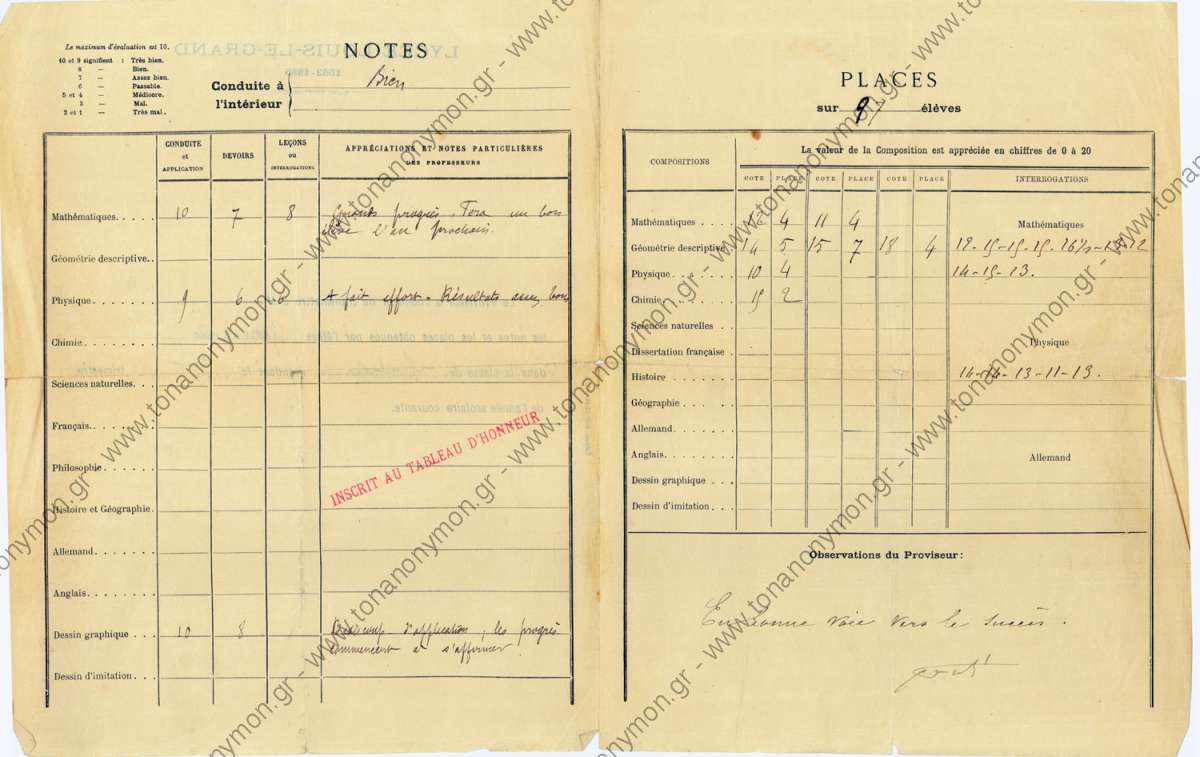 Le maximum d'évaluation est 10.
10 et 9 signifient : Très bien.
8 — Bien.
7 — Assez bien.
6 — Passable.
5 et 4 — Médiocre.
3 — Mal.
2 et 1 — Très mal.
NOTES
Conduite à l'intérieur
Bien
CONDUITE et APPLICATION
DEVOIRS
LEÇONS ou INTERROGATIONS
APPRÉCIATIONS ET NOTES PARTICULIÈRES DES PROFESSEURS
Mathématiques. . . . . 10 7 8 Grands progrès. Fera un bon
élève l'an prochain.
Géométrie descriptive. .
Physique . . . . . . . 9 6 6 A fait effort. Résultats assez bons
Chimie . . . . . . . .
Sciences naturelles. . .
Français. . . . . . . .
Philosophie. . . . . . .
Histoire et Géographie.
Allemand. . . . . . . .
Anglais. . . . . . . . .
Dessin graphique . . . 10 8 Beaucoup d'application, les progrès
commencent à s'affirmer
Dessin d'imitation. . . .
INSCRIT AU TABLEAU D'HONNEUR
PLACES
sur 8 élèves
COMPOSITIONS
La valeur de la Composition est appréciée en chiffres de 0 à 20
COTE PLACE COTE PLACE COTE PLACE INTERROGATIONS
Mathématiques . . . . 12 4 11 4 Mathématiques
Géométrie descriptive. 14 5 15 7 18 4
Physique . . . . 10 4 14-15-13.
Chimie . . . . 15 2
Sciences naturelles . .
Physique
Dissertation française .
Histoire . . . . 14-14-13-11-13.
Géographie . . . .
Allemand. . . . .
Anglais. . . . . Allemand
Dessin graphique . . .
Dessin d'imitation. . .
Observations du Proviseur :
En bonne voie vers le succès.
www.tonanonymon.gr - www.tonanonymon.gr - www.tonanonymon.gr